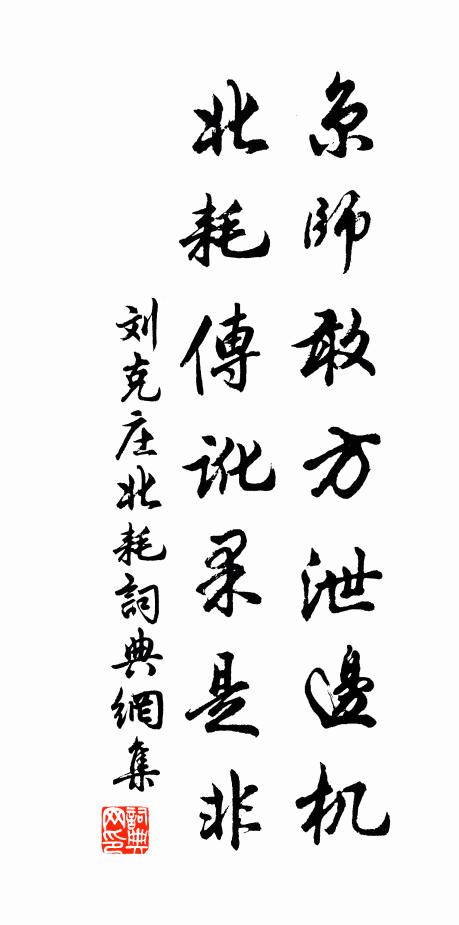 京師敢方泄邊机
北耗傳訛果是非
刘克庄北耗詞典網集
詞典网印